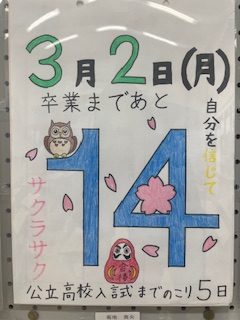 3月2日(月)
卒業まであと
14
自分を信じて
サクラサク
合格
公立高校入試までのこり5日